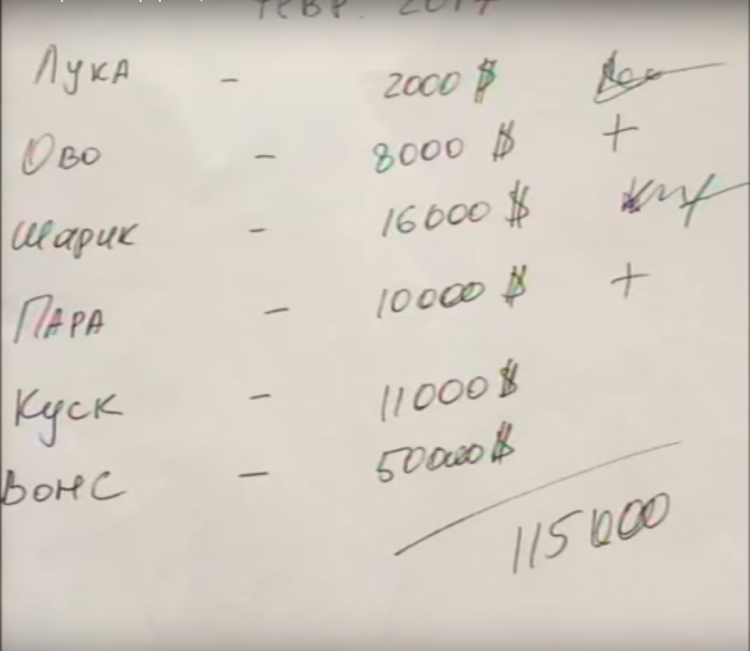 Лука - 2000 $
Ово - 8000 $ +
Шарик - 16000 $
Пара - 10000 $ +
Куск - 11000 $
Вонс - 50000 $
115000